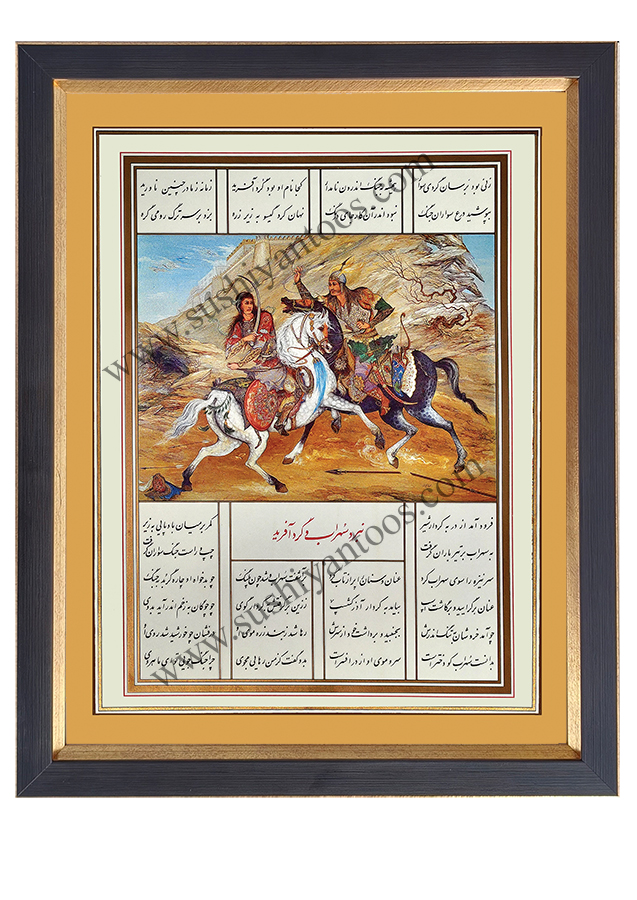 زنی بود برسان گردی سوار همیشه بجنگ اندرون نامدار کجا نام او بود گردآفرید زمانه ز مادر چنین ناورید
بپوشید درع سواران جنگ نبود اندر آن کار جای درنگ نهان کرد گیسو به زیر زره بزد بر سر ترگ رومی گره
فرود آمد از در به کردار شیر کمر بر میان بادپایی به زیر
به سهراب بر تیر باران گرفت چپ و راست جنگ سواران گرفت
نبرد سهراب و گردآفرید
سر نیزه را سوی سهراب کرد عنان و سنان را پر از تاب کرد برآشفت سهراب و شد چون پلنگ چو بدخواه او چاره گر بد بجنگ
عنان برگرایید و برگاشت اسپ بیامد به کردار آذرگشسپ چو چوگان به زخم اندر آید بدوی
چو آمد خروشان به تنگ اندرش بجنبید و برداشت خود از سرش رها شد ز بند زره موی او درفشان چو خورشید شد روی او
بدانست سهراب کو دختر است سر و موی او از در افسر است بدو گفت کز من رهایی مجوی چرا جنگ جویی تو ای ماه روی
www.sushiyantoos.com
www.sushiyantoos.com